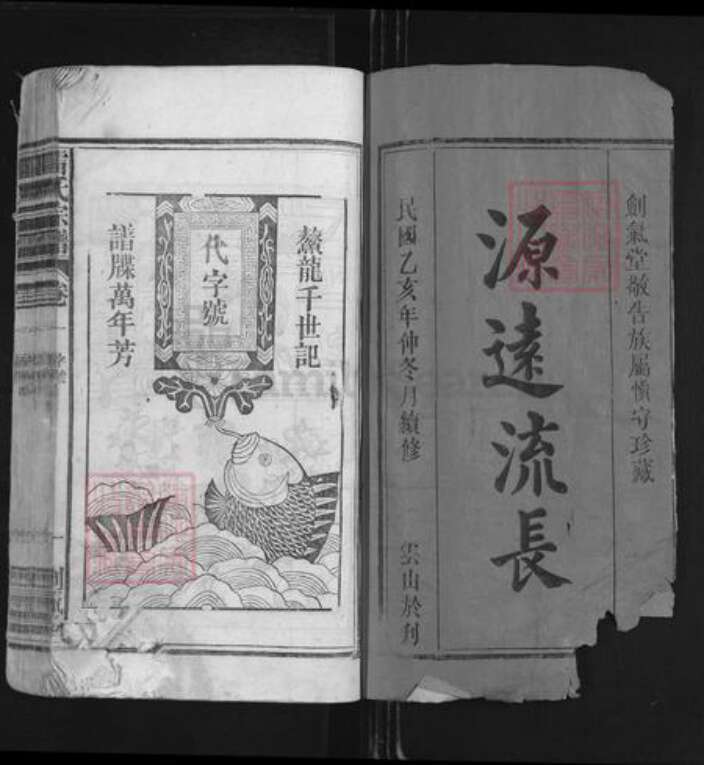 劍氣堂敬告族屬慎守珍藏
源遠流長
民國乙亥年仲冬月續修
雲山於刊
鰲龍千世記
代字號
譜牒萬年芳
氏宗譜
卷